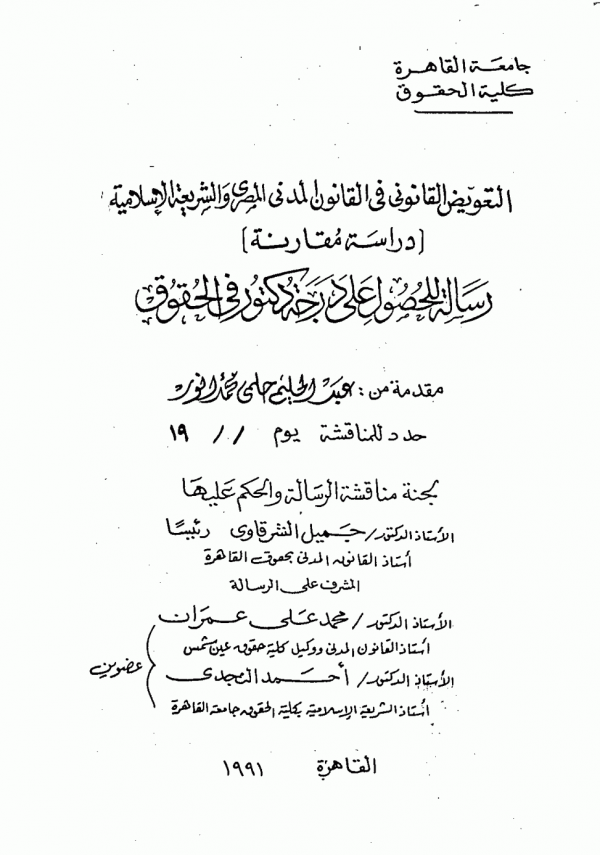 جامعة القاهرة
كلية الحقوق
التعويض القانونى فى القانون المدنى المصرى والشريعة الإسلامية
(دراسة مقارنة)
رسالة للحصول على درجة دكتور فى الحقوق
مقدمة من : عبد الحليم حلمى محمد أنور
حدد للمناقشة يوم / / ١٩
لجنة مناقشة الرسالة والحكم عليها
الأستاذ الدكتور / جميل الشرقاوى رئيسًا
أستاذ القانون المدنى بحقوق القاهرة
المشرف على الرسالة
الأستاذ الدكتور / محمد على عمران
أستاذ القانون المدنى ووكيل كلية حقوق عين شمس
عضوين
الأستاذ الدكتور / أحمد النجدى
أستاذ الشريعة الإسلامية بكلية الحقوق جامعة القاهرة
القاهرة ١٩٩١